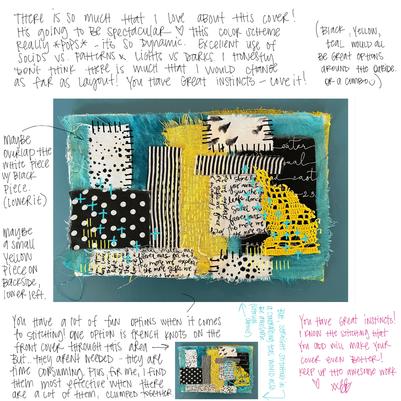 THERE IS SO MUCH THAT I LOVE ABOUT THIS COVER!
IT'S GOING TO BE SPECTACULAR ♡ THIS COLOR SCHEME
REALLY *POPS* - IT'S SO DYNAMIC. EXCELLENT USE OF
SOLIDS VS. PATTERNS & LIGHTS VS DARKS. I HONESTLY
DON'T THINK THERE IS MUCH THAT I WOULD CHANGE
AS FAR AS LAYOUT! YOU HAVE GREAT INSTINCTS - LOVE IT!
(BLACK, YELLOW,
TEAL WOULD ALL
BE GREAT OPTIONS
AROUND THE OUTSIDE.
OR A COMBO)
MAYBE
OVERLAP THE
WHITE PIECE
W/ BLACK
PIECE.
(LOWER IT)
MAYBE
A SMALL
YELLOW
PIECE ON
BACKSIDE,
LOWER LEFT.
water
YOU HAVE A LOT OF FUN OPTIONS WHEN IT COMES
TO STITCHING! ONE OPTION IS FRENCH KNOTS ON THE
FRONT COVER THROUGH THIS AREA →
BUT... THEY AREN'T NEEDED - THEY ARE
TIME CONSUMING. PLUS FOR ME, I FIND
THEM MOST EFFECTIVE WHEN THERE
ARE A LOT OF THEM, CLUMPED TOGETHER
YOU HAVE GREAT INSTINCTS!
I KNOW THE STITCHING THAT
YOU ADD WILL MAKE YOUR
COVER EVEN BETTER!
KEEP UP THE AWESOME WORK